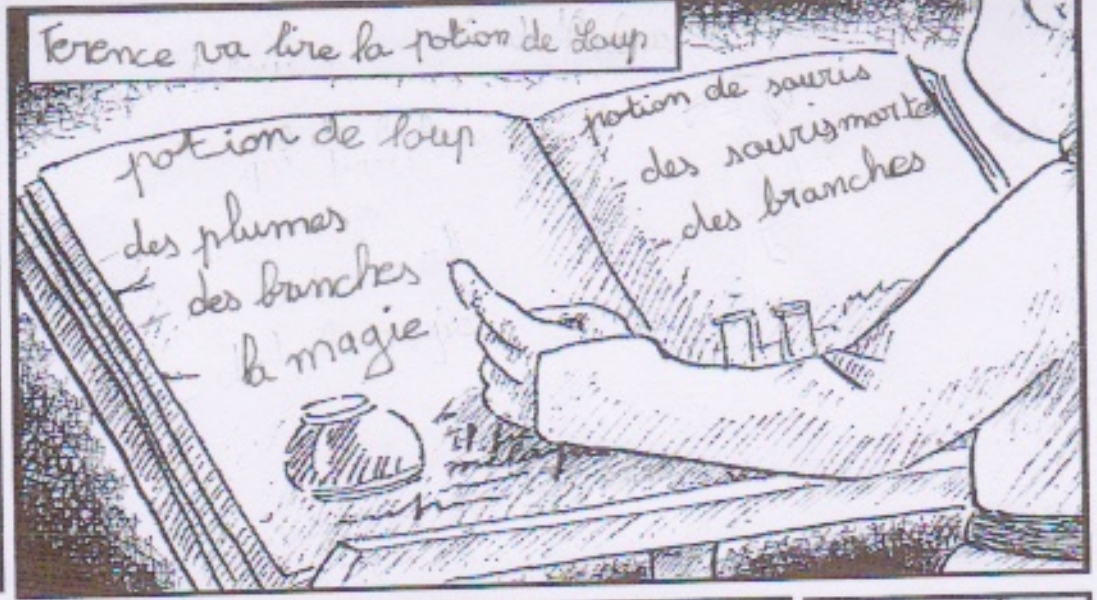 Terence va lire la potion de Loup
potion de loup
des plumes
des branches
la magie
potion de souris
des souris morte
des branches